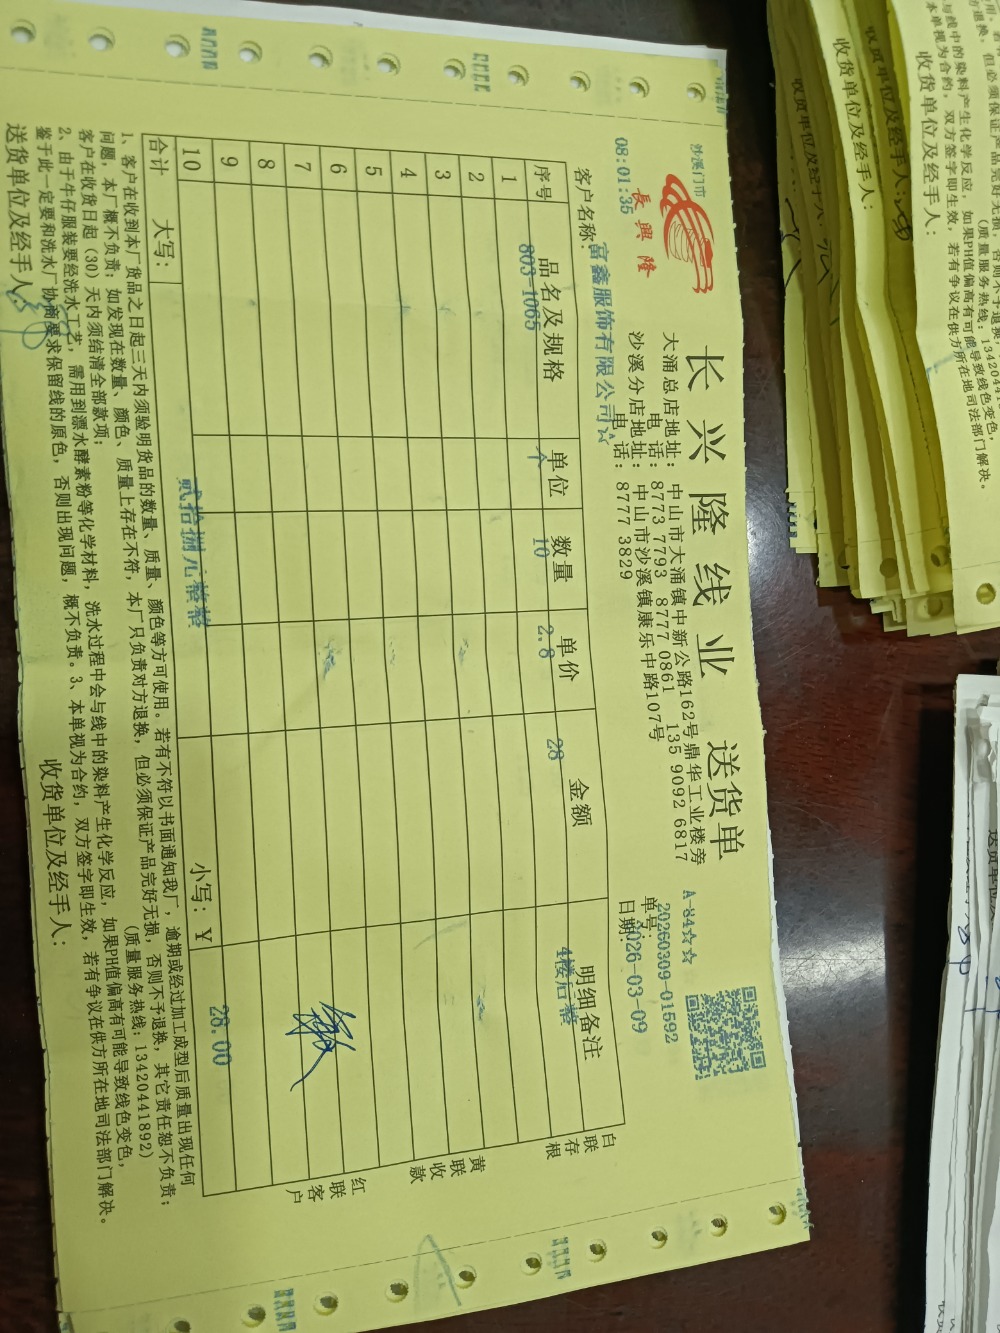 沙溪门市
長興隆
08:01:35
长兴隆线业 送货单
大涌总店地址：中山市大涌镇中新公路162号鼎华工业楼旁
电话：8773 7793 8777 0861 135 9092 6817
沙溪分店地址：中山市沙溪镇康乐中路107号
电话：8777 3829
A-84☆☆
单号：20260309-01592
日期：2026-03-09
客户名称：富鑫服饰有限公司☆
序号 品名及规格 单位 数量 单价 金额 明细备注
1 803-1065 个 10 2.8 28 4楼后整
2
3
4
5
6
7
8
9
10
合计 大写： 贰拾捌元整整 小写：Y 28.00
白联存根
黄联收款
红联客户
1、客户在收到本厂货品之日起三天内须验明货品的数量、质量、颜色等方可使用。若有不符以书面通知我厂，逾期或经过加工成型后质量出现任何
问题，本厂概不负责；如发现在数量、颜色、质量上存在不符，本厂只负责对方退换，但必须保证产品完好无损，否则不予退换，其它责任恕不负责；
客户在收货日起（30）天内须结清全部款项；（质量服务热线：13420441892）
2、由于牛仔服装要经洗水工艺，需用到漂水酵素粉等化学材料，洗水过程中会与线中的染料产生化学反应，如果PH值偏高有可能导致线色变色，
鉴于此一定要和洗水厂协商要求保留线的原色，否则出现问题，概不负责。3、本单视为合约，双方签字即生效，若有争议在供方所在地司法部门解决。
送货单位及经手人： 收货单位及经手人：
但必须保证产品完好无损，否则不予退换，
（质量服务热线：1342044
线中的染料产生化学反应，如果PH值偏高有可能导致线色变色，
本单视为合约，双方签字即生效，若有争议在供方所在地司法部门解决。
收货单位及经手人：
收货单位及经手人：
收货单位及经手人：